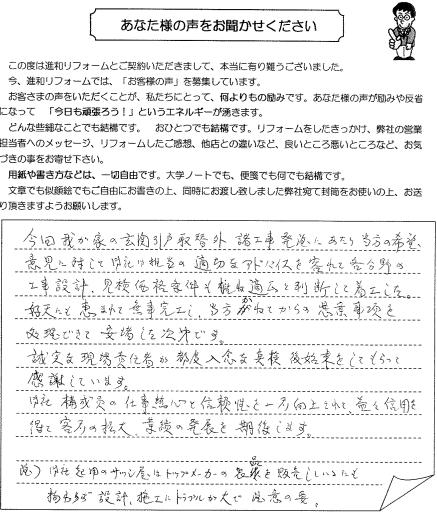 あなた様の声をお聞かせください
この度は進和リフォームとご契約いただきまして、本当に有り難うございました。
今、進和リフォームでは、「お客様の声」を募集しています。
お客さまの声をいただくことが、私たちにとって、何よりもの励みです。あなた様の声が励みや反省
になって 「今日も頑張ろう！」というエネルギーが湧きます。
どんな些細なことでも結構です。 おひとつでも結構です。リフォームをしたきっかけ、弊社の営業
担当者へのメッセージ、リフォームしたご感想、他店との違いなど、良いところ悪いところなど、お気
づきの事をお寄せ下さい。
用紙や書き方などは、一切自由です。大学ノートでも、便箋でも何でも結構です。
文章でも似顔絵でもご自由にお書きの上、同時にお渡し致しました弊社宛て封筒をお使いの上、お送
り頂きますようお願いします。
今回我が家の玄関引戸取替外 諸工事発注にあたり当方の希望、
意見に対して 内社 担当の 適切なアドバイスを 各分野の
工事設計、見積価格条件も概ね適正と判断して着工した。
好天にも恵まれて無事完工し、当方かねてからの懸案事項を
処理できて 安堵した次第です。
誠実な現場責任者が都度入念な点検 後始末をしてもらって
感謝しています。
構成員の 仕事熱心と信頼性を一層向上されて、益々信用を
得て 客層の拡大、業績の発展を期待します。
サッシ屋はトップメーカーの 製品を販売しているにも
拘わらず 設計、施工にトラブルが 注意の要。